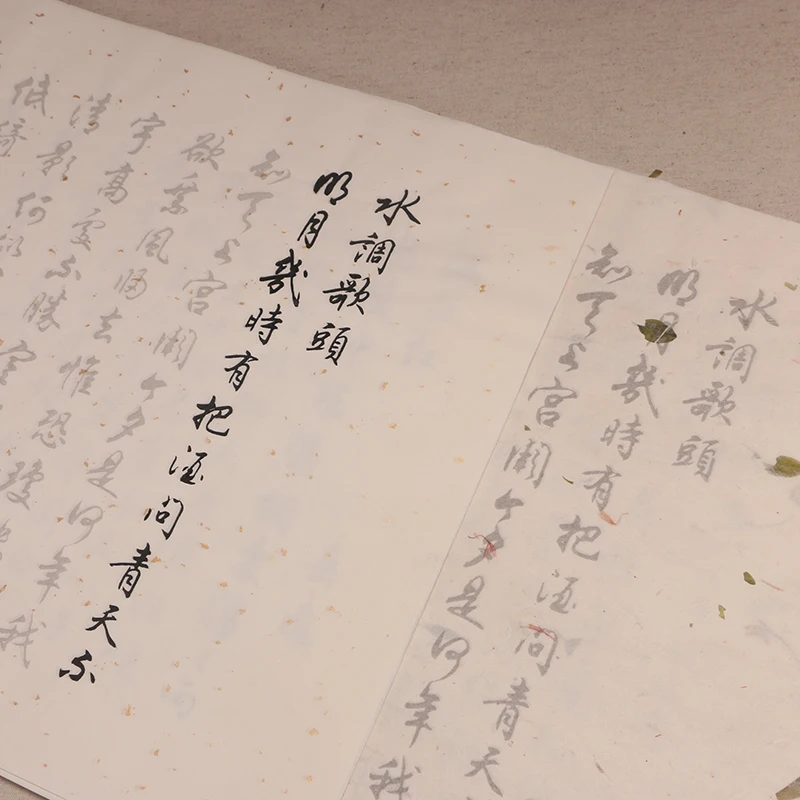 水調歌頭
明月幾時有把酒問青天不
知天上宮闕今夕是何年我
欲乘風歸去惟恐瓊
宇高處不勝寒
清影何似
低綺
水調歌頭
明月幾時有把酒問青天
知天上宮闕今夕是何年我